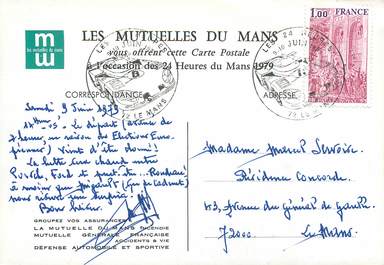 LES MUTUELLES DU MANS
vous offrent cette Carte Postale
à l'occasion des 24 Heures du Mans 1979
les mutuelles du mans
1,00 FRANCE
LES 24
JUIN
72 LE MANS
LES 24
9.10 JUI
72 LE MANS
CORRESPONDANCE
ADRESSE
Samedi 9 Juin 1979
14 - 05 - Le départ (avancé de
2 heures en raison des Elections Euro-
péennes) vient d'être donné!
La lutte sera chaude entre
Porsch, Ford et peut-être Rondeau!
à moins que Mirage
nous
Bon
Madame Marcel
Résidence Concorde
43, Avenue du Général de Gaulle
72000 Le Mans
GROUPEZ VOS ASSURANCES
LA MUTUELLE DU MANS INCENDIE
MUTUELLE GÉNÉRALE FRANÇAISE
ACCIDENTS & VIE
DÉFENSE AUTOMOBILE ET SPORTIVE